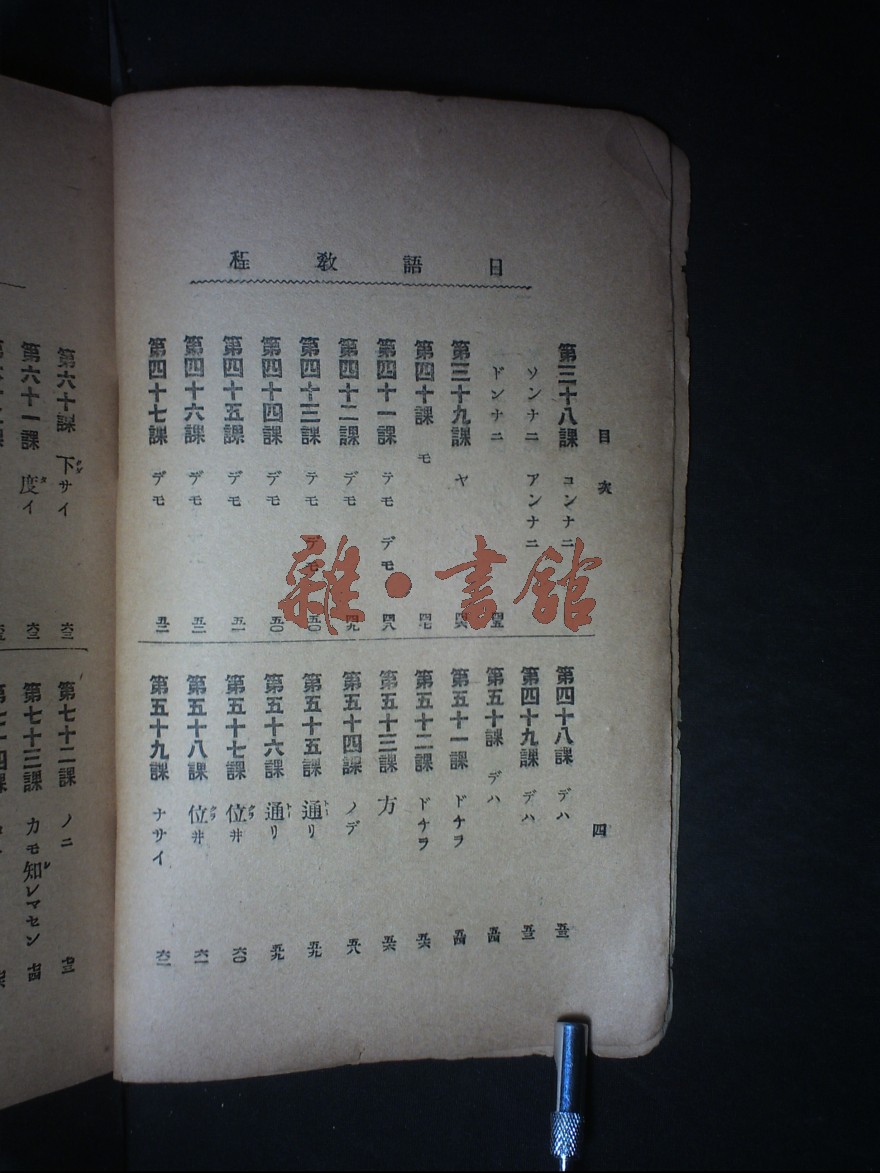 日語教程
目次
第三十八課 コンナニ
ソンナニ アンナニ
ドンナニ 四五
第三十九課 ヤ 四六
第四十課 モ 四七
第四十一課 テモ デモ 四八
第四十二課 デモ 四九
第四十三課 テモ デモ 五〇
第四十四課 デモ 五〇
第四十五課 デモ 五一
第四十六課 デモ 五二
第四十七課 デモ
第四十八課 デハ 五三
第四十九課 デハ 五三
第五十課 デハ 五四
第五十一課 ドチラ 五四
第五十二課 ドチラ 五六
第五十三課 方 五六
第五十四課 ノデ 五八
第五十五課 通リ 五九
第五十六課 通リ 五九
第五十七課 位井 六〇
第五十八課 位井 六一
第五十九課 ナサイ
四
第六十課 下サイ
第六十一課 度イ
第七十二課 ノニ 七三
第七十三課 カモ知レマセン 七四
雜·書館